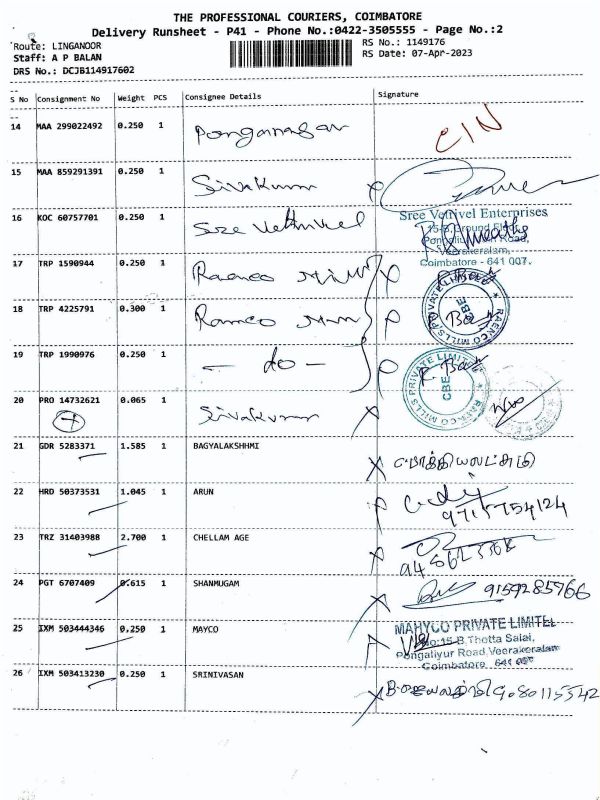 THE PROFESSIONAL COURIERS, COIMBATORE
Delivery Runsheet - P41 - Phone No.:0422-3505555 - Page No.:2
Route: LINGANOOR
Staff: A P BALAN
DRS No.: DCJB114917602
RS No.: 1149176
RS Date: 07-Apr-2023
S No Consignment No Weight PCS Consignee Details Signature
14 MAA 299022492 0.250 1
15 MAA 859291391 0.250 1 Sivakumar
16 KOC 60757701 0.250 1 Sree Vetrivel
Sree Vetrivel Enterprises
Coimbatore - 641 007.
17 TRP 1590944 0.250 1 Raenco Mills
18 TRP 4225791 0.300 1
19 TRP 1990976 0.250 1 - do -
RAENCO MILLS PRIVATE LIMITED
CBE
20 PRO 14732621 0.065 1 Sivakumar
21 GDR 5283371 1.585 1 BAGYALAKSHHMI
22 HRD 50373531 1.045 1 ARUN
9715754124
23 TRZ 31403988 2.700 1 CHELLAM AGE
24 PGT 6707409 0.615 1 SHANMUGAM 9159285766
25 IXM 503444346 0.250 1 MAYCO
MAHYCO PRIVATE LIMITED
No:15-B, Thotta Salai,
Pongaliyur Road, Veerakeralam
Coimbatore, 641 007
26 IXM 503413230 0.250 1 SRINIVASAN 9080115542